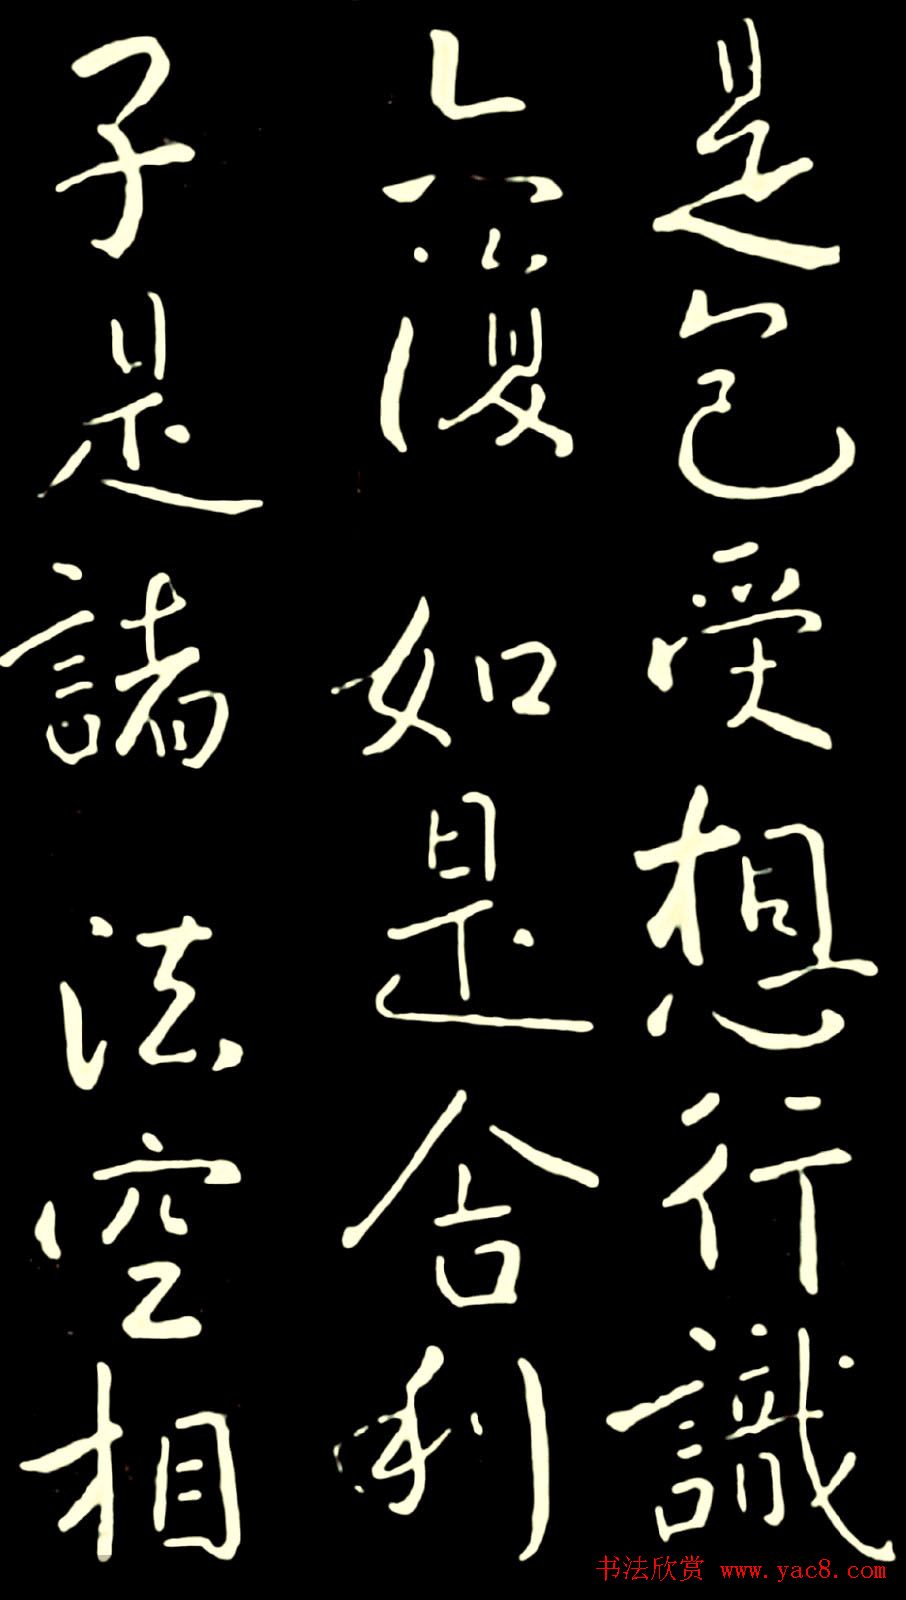 是色受想行識
亦復如是舍利
子是諸法空相
书法欣赏 www.yac8.com